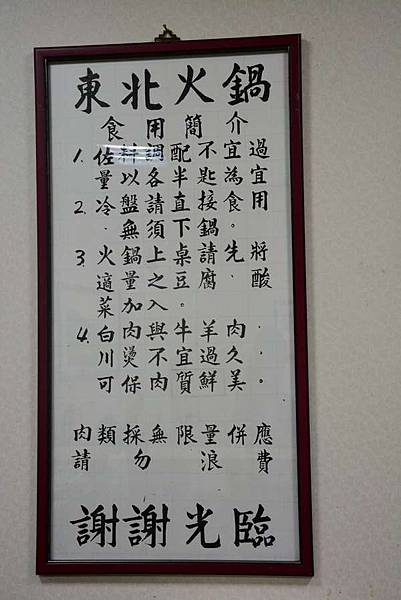 東北火鍋
食用簡介
1. 佐料調配不宜過
量以各半匙為宜
2. 冷盤請直接食用
.無須下鍋。
3. 火鍋上桌請先將
適量之豆腐.酸
菜加入。
4. 白肉與牛羊肉.
川燙不宜過久.
可保肉質鮮美。
肉類採無限量併應
請勿浪費
謝謝光臨